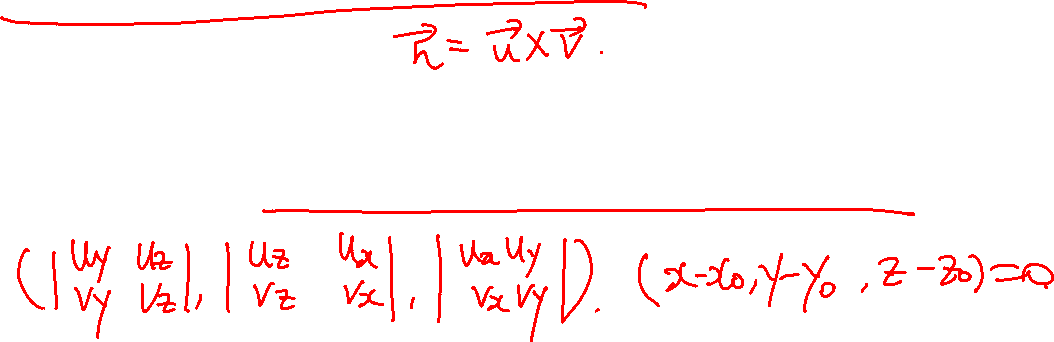 $\vec{n} = \vec{u} \times \vec{v}.$
$\left( \begin{vmatrix} u_y & u_z \\ v_y & v_z \end{vmatrix}, \begin{vmatrix} u_z & u_x \\ v_z & v_x \end{vmatrix}, \begin{vmatrix} u_x & u_y \\ v_x & v_y \end{vmatrix} \right) \cdot (x-x_0, y-y_0, z-z_0) = 0$